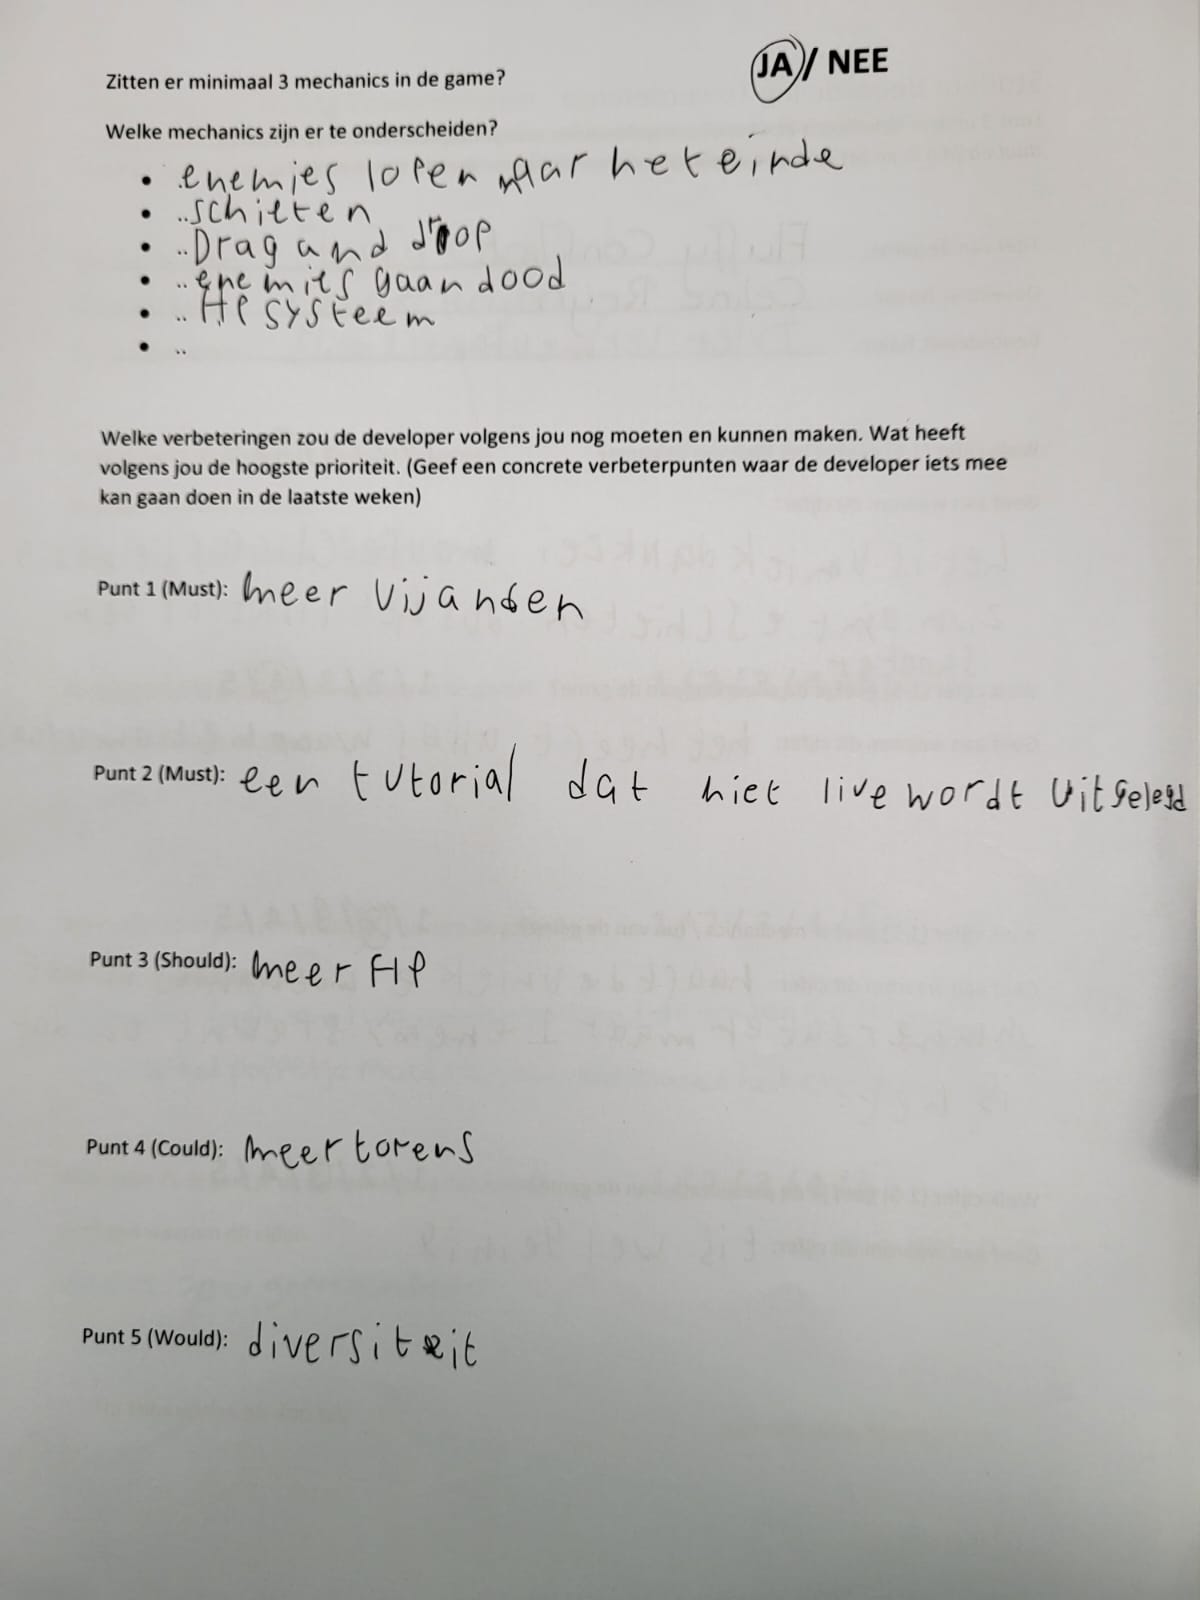 Zitten er minimaal 3 mechanics in de game? JA / NEE
Welke mechanics zijn er te onderscheiden?
• .enemies lopen naar het einde
• ..schieten
• ..Drag and drop
• ..enemies gaan dood
• ..HP systeem
• ..
Welke verbeteringen zou de developer volgens jou nog moeten en kunnen maken. Wat heeft
volgens jou de hoogste prioriteit. (Geef een concrete verbeterpunten waar de developer iets mee
kan gaan doen in de laatste weken)
Punt 1 (Must): meer vijanden
Punt 2 (Must): een tutorial dat niet live wordt uitgelegd
Punt 3 (Should): meer HP
Punt 4 (Could): meer torens
Punt 5 (Would): diversiteit